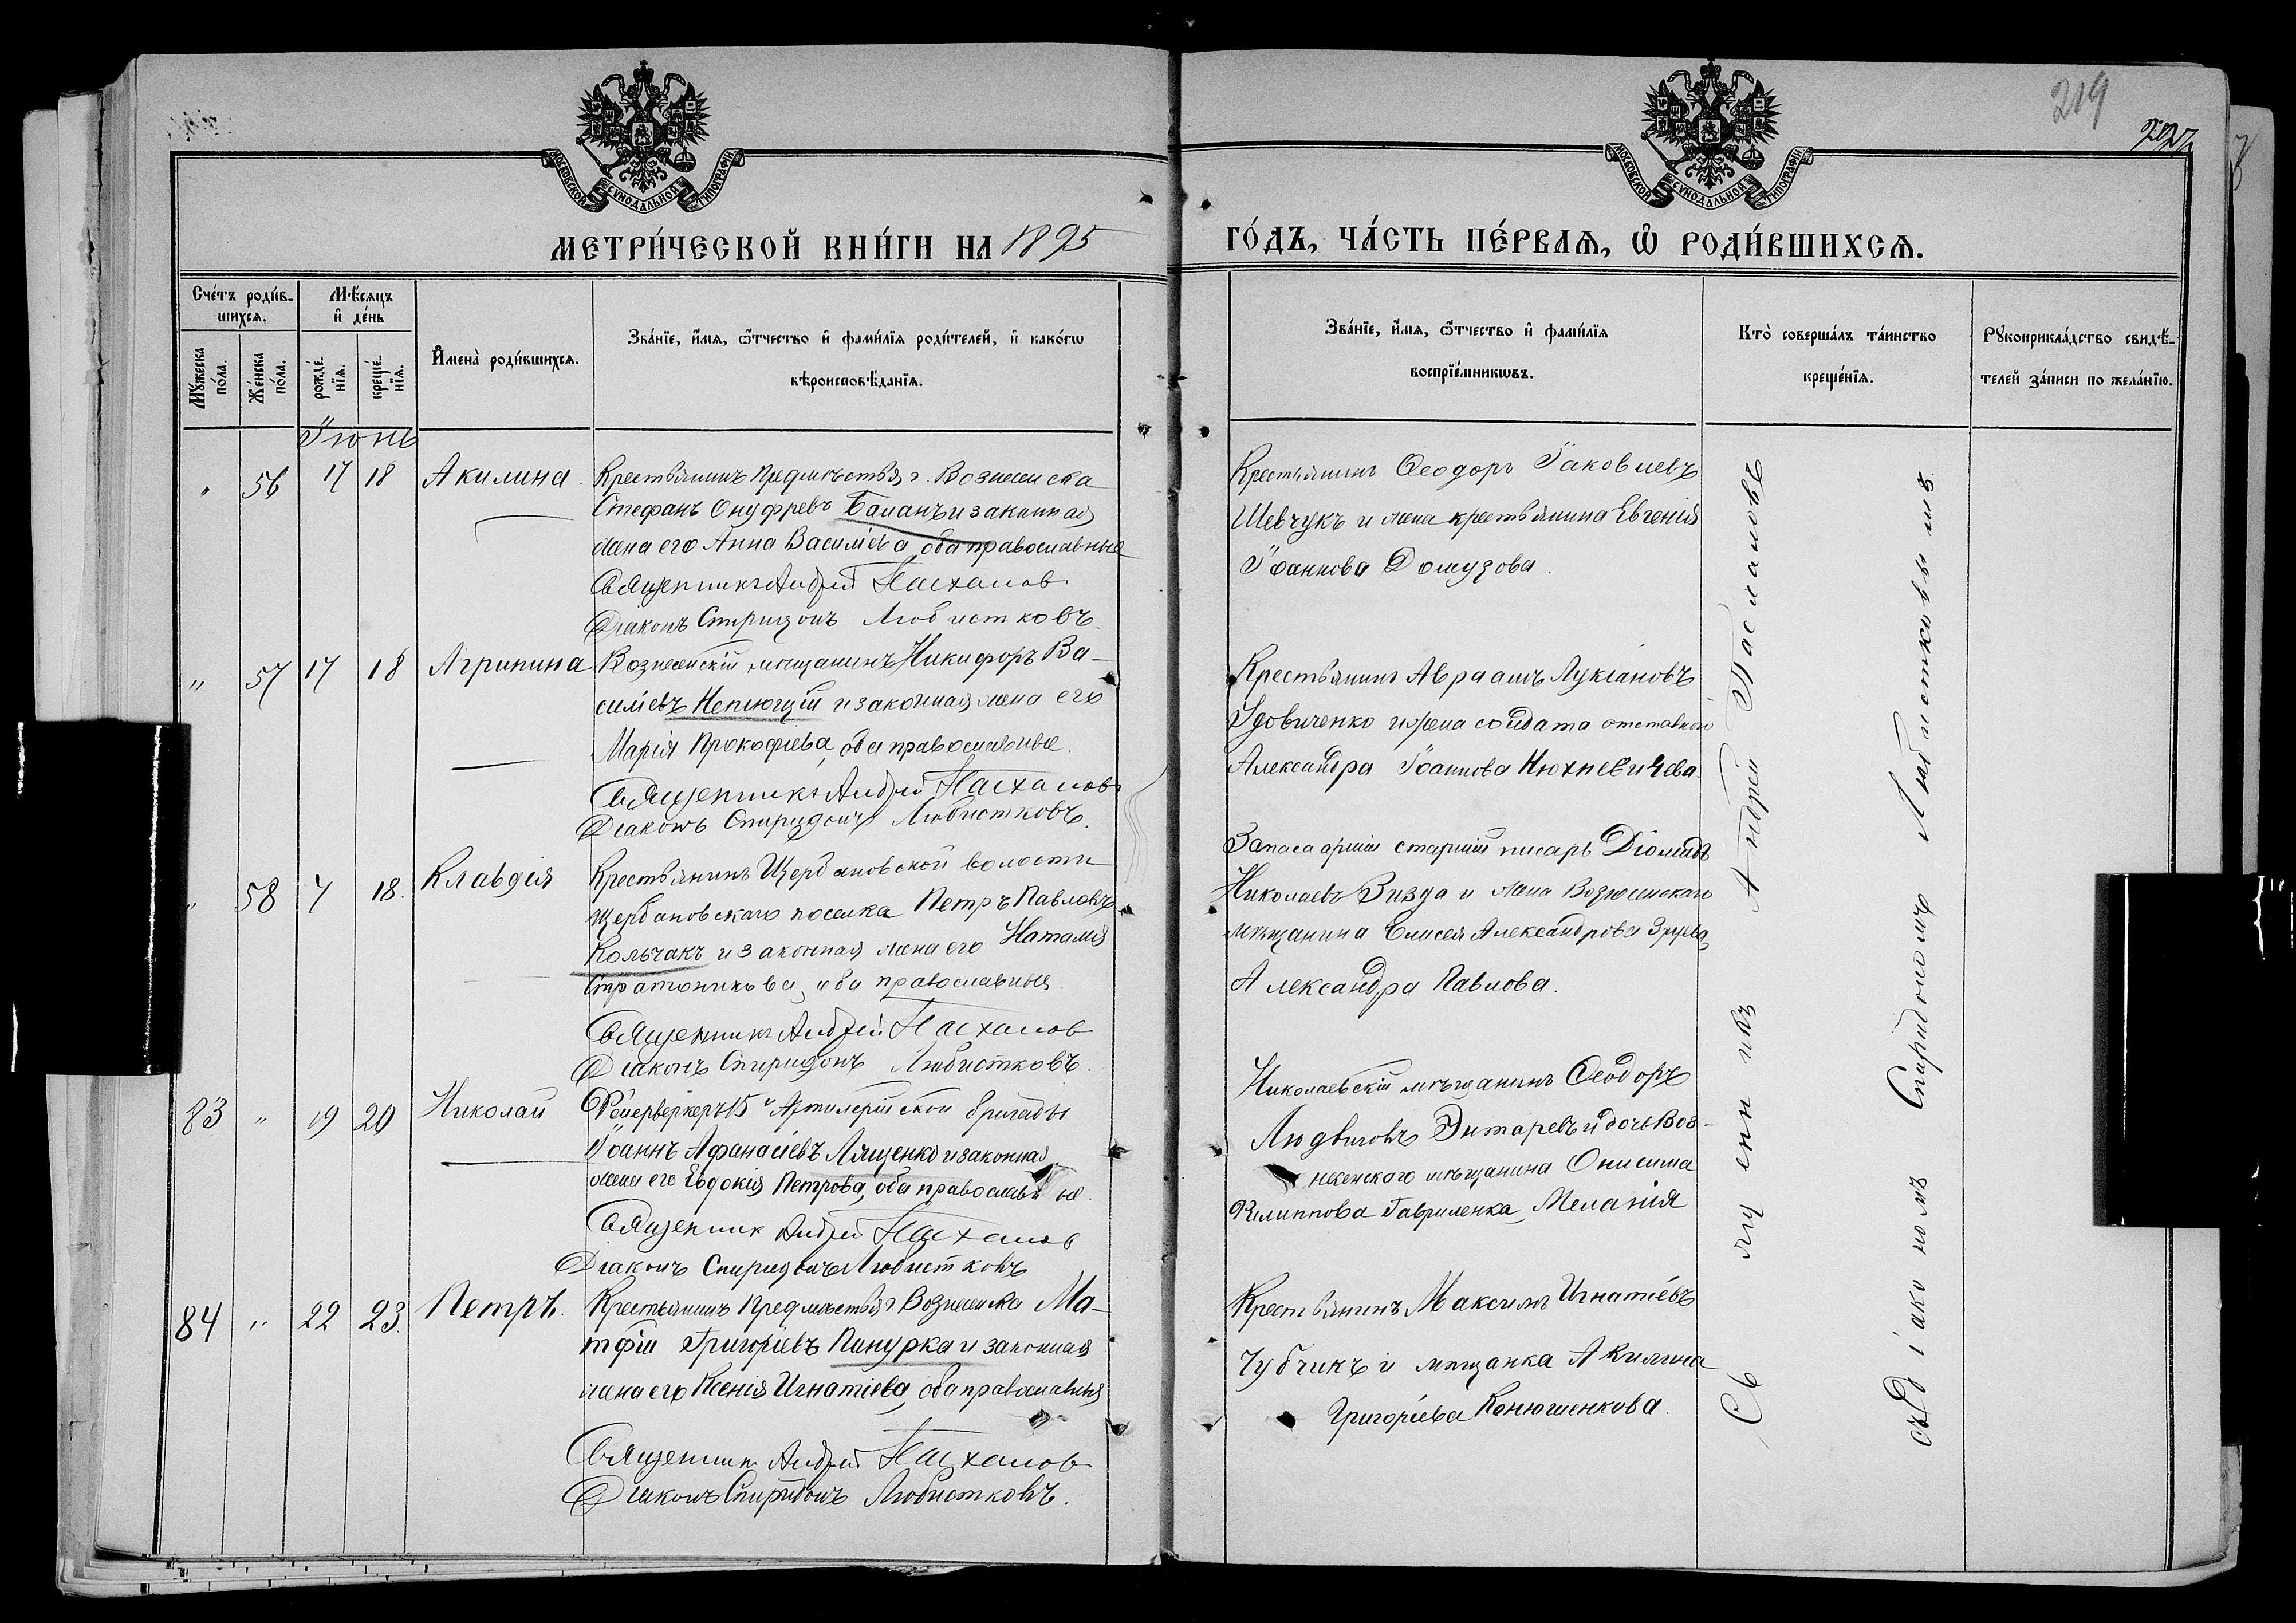 219
МОСКОВСКОЙ СУНОДАЛЬНОЙ ТИПОГРАФІИ
МОСКОВСКОЙ СУНОДАЛЬНОЙ ТИПОГРАФІИ
МЕТРИ́ЧЕСКОЙ КНИ́ГИ НА 1895
ГО́ДЪ, ЧА́СТЬ ПЕ́РВАѦ, Ѽ РОДИ́ВШИХСѦ.
Сче́тъ роди́в-
шихсѧ.
Мѣ́сѧцъ
и҆ де́нь
Мꙋ́жеска
по́ла.
Же́нска
по́ла.
рожде́-
нїѧ.
креще́-
нїѧ.
И҆мена̀ роди́вшихсѧ.
Зва́нїе, и҆́мѧ, ѻ҆́тчество и҆ фами́лїѧ роди́телей, и҆ како́гѡ
вѣроисповѣ́данїѧ.
Зва́нїе, и҆́мѧ, ѻ҆́тчество и҆ фами́лїѧ
воспрїе́мникѡвъ.
Кто̀ соверша́лъ та́инство
креще́нїѧ.
Рꙋкоприкла́дство свидѣ́-
телей за́писи по жела́нїю.
Іюнь
" 56 17 18 Акилина
Крестьянинъ Предмѣстья г. Вознесенска
Стефанъ Онуфревъ Баланъ и законная
жена его Анна Василіева, оба православные
Священникъ Андрей Пасхалов
Діаконъ Спиридонъ Любистковъ.
Крестьянинъ Ѳеодоръ Іаковлевъ
Шевчукъ и жена крестьянина Евгенія
Іоаннова Домузова.
" 57 17 18 Агрипина
Вознесенскій мѣщанинъ Никифоръ Ва-
силіевъ Непіющій и законная жена его
Марія Прокофіева, оба православные.
Священникъ Андрей Пасхалов
Діаконъ Спиридонъ Любистковъ.
Крестьянинъ Авраамъ Лукіановъ
Удовиченко и жена солдата отставной
Александра Іоаннова Нюхневичева.
" 58 7 18. Клавдія
Крестьянинъ Щербановской волости
Щербановскаго поселка Петръ Павловъ
Кольчакъ и законная жена его Наталія
Стратоникова, оба православные
Священникъ Андрей Пасхалов
Діаконъ Спиридонъ Любистковъ.
Запаса арміи старшій писарь Діомидъ
Николаевъ Визда и жена Вознесенскаго
мѣщанина Елисея Александрова
Александра Павлова.
83 " 19 20 Николай
Фейерверкеръ 15й Артилерійской бригады
Іоаннъ Афанасіевъ Лященко и законная
жена его Евдокія Петрова, оба православные.
Священник Андрей Пасхалов
Діаконъ Спиридонъ Любистковъ
Николаевскій мѣщанинъ Ѳеодоръ
Людвиговъ и дочь Воз-
несенского мѣщанина Онисима
Филиппова Гавриленка, Меланія
84 " 22 23. Петръ.
Крестьянинъ Предмѣстья г Вознесенска Ма-
тфій Григоріевъ Панурка и законная
жена его Ксенія Игнатіева, оба православные
Священник Андрей Пасхалов
Діаконъ Спиридонъ Любистковъ.
Крестьянинъ Максимъ Игнатіевъ
Чубчикъ и мѣщанка Акилина
Григоріева Конюшенкова.
Священникъ Андрей Пасхаловъ
съ Діакономъ Спиридономъ Любистковымъ.